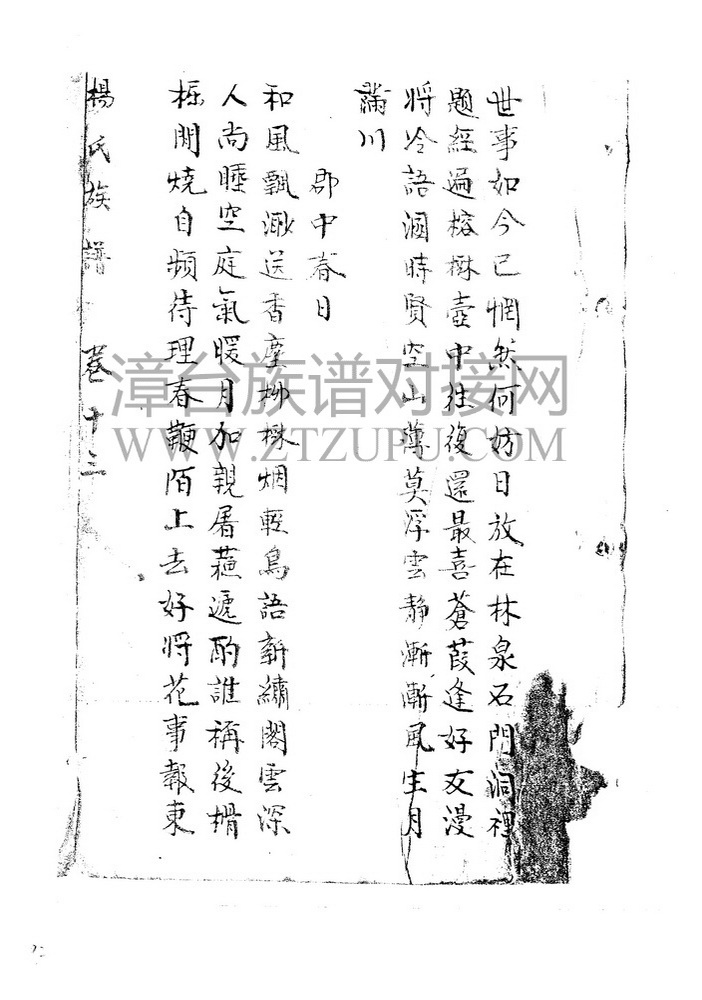 世事如今已惘然何妨日放在林泉石門洞裡
題經遍榕樹壺中往復還最喜蒼葭逢好友漫
將冷語溷時賢空山薄莫浮雲静漸漸風生月
滿川
郡中春日
和風飄渺送香塵柳樹烟輕鳥語新繡閣雲深
人尚睡空庭氣暖月加親屠蘓遞酌誰稱後榾
柮閒燒自頻待理春鞭陌上去好將花事報東
楊氏族譜 卷十三
漳台族谱对接网
WWW.ZTZUPU.COM